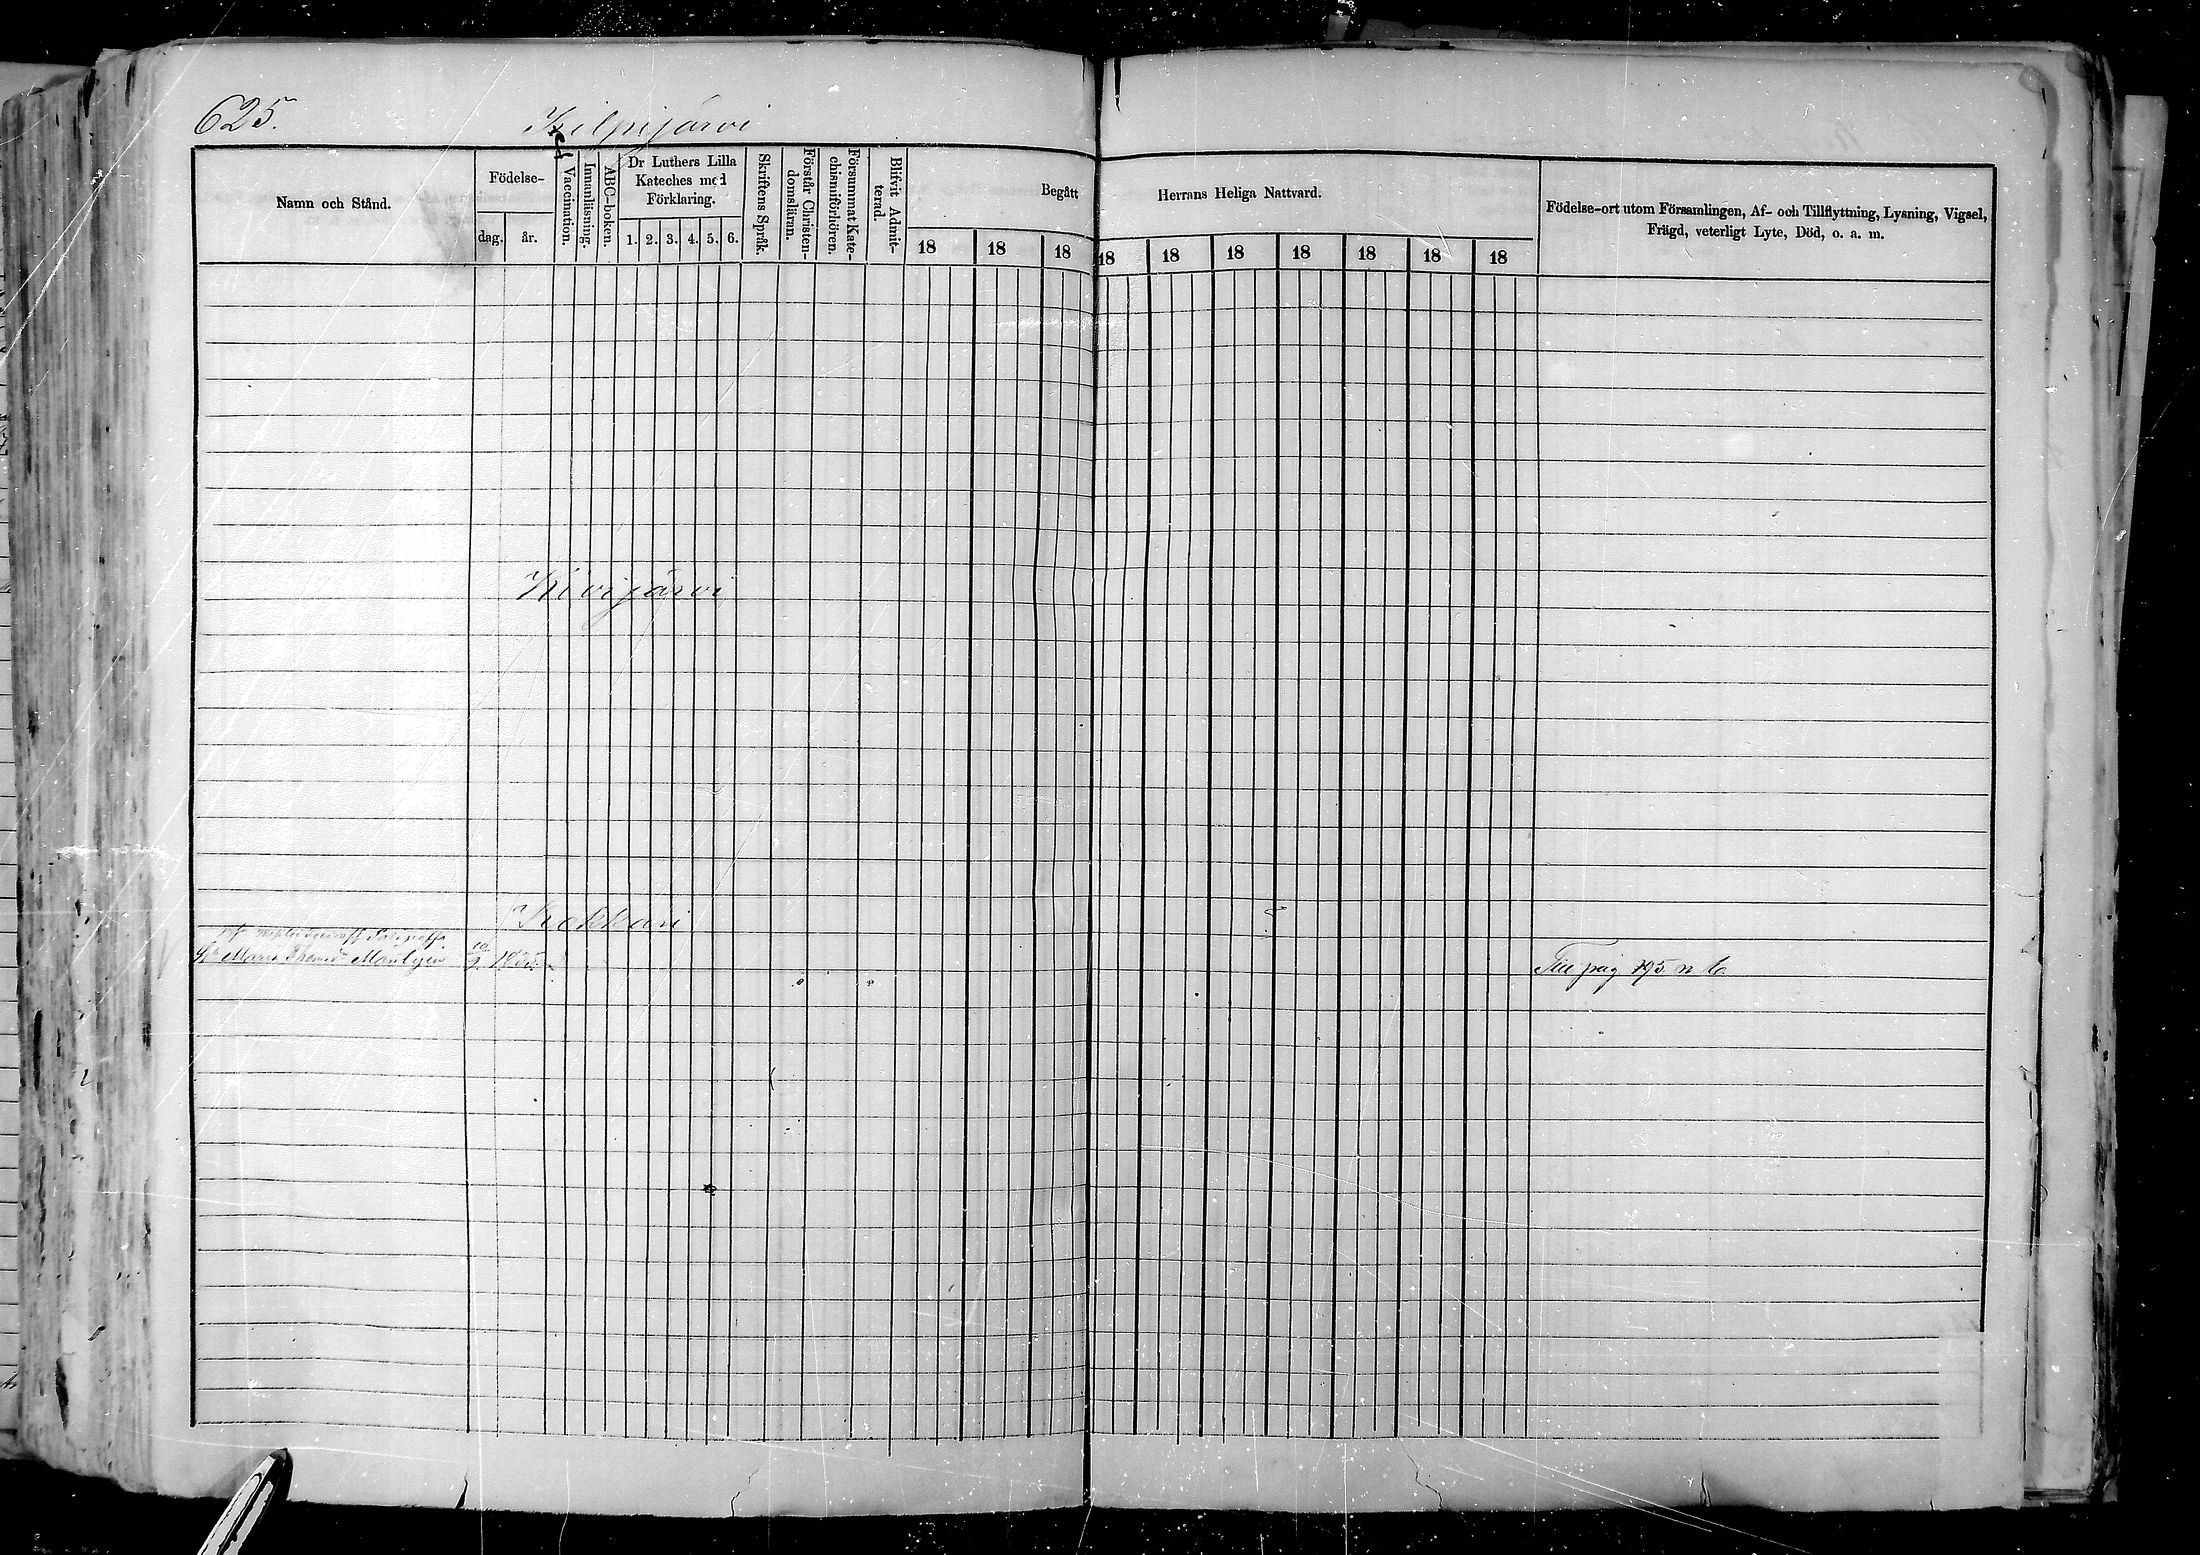 625.
Kilpijärvi
Namn och Stånd.
Födelse-
dag.
år.
Vaccination.
Innanläsning.
ABC-boken.
Dr Luthers Lilla
Kateches med
Förklaring.
1. 2. 3. 4. 5. 6.
Skriftens Språk.
Förstår Christen-
domsläran.
Försummat Kate-
chismiförhören.
Blifvit Admit-
terad.
Begått Herrans Heliga Nattvard.
18 18 18 18 18 18 18 18 18 18
Födelse-ort utom Församlingen, Af- och Tillflyttning, Lysning, Vigsel,
Frägd, veterligt Lyte, Död, o. a. m.
Kivijärvi
Kokkari
Maria Thomasd Mantyin 10/9
Till pag 795 n 6